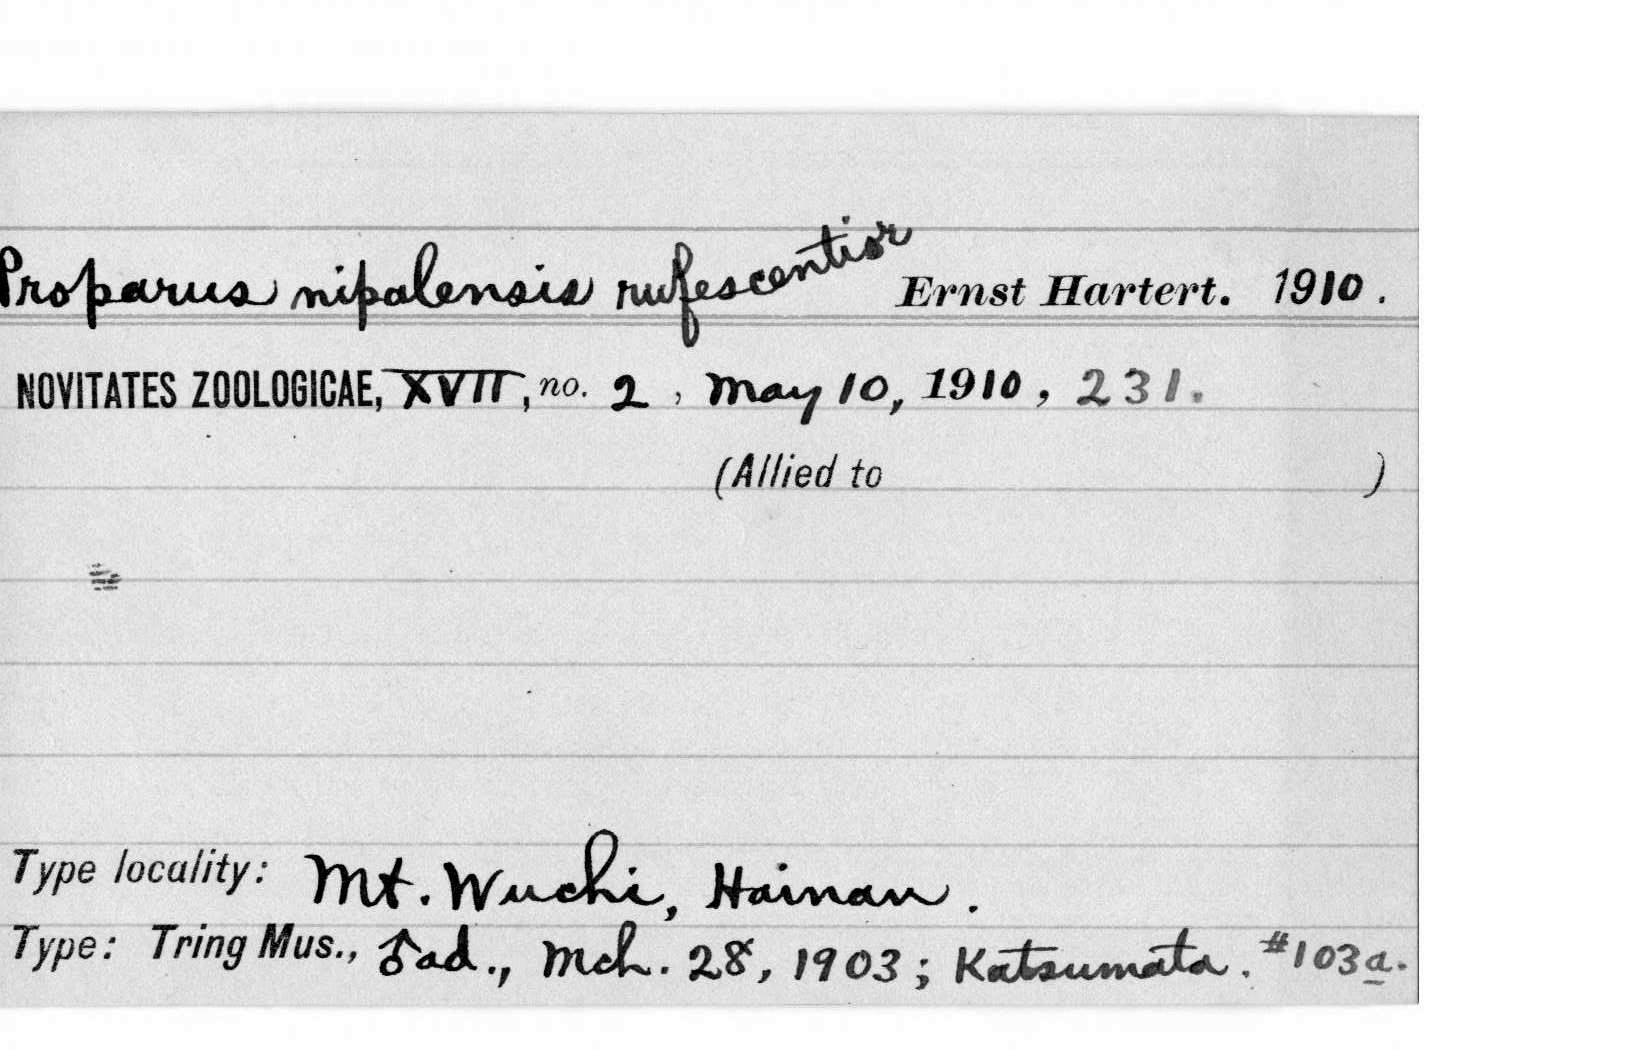 Proparus nipalensis rufescentior Ernst Hartert. 1910.
NOVITATES ZOOLOGICAE, XVII, no. 2, May 10, 1910, 231.
(Allied to )
Type locality: Mt. Wuchi, Hainan.
Type: Tring Mus., ♂ad., Mch. 28, 1903; Katsumata. #103a.